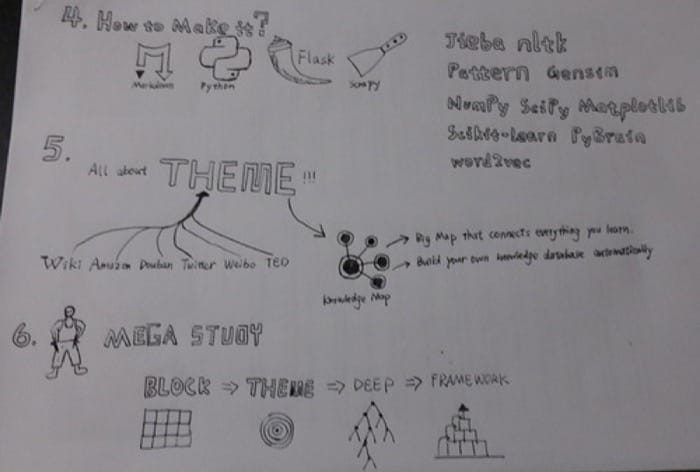 4. How to Make it?
Markdown Python Flask Scrapy
Jieba nltk
Pattern Gensim
NumPy SciPy Matplotlib
Scikit-Learn PyBrain
word2vec
5.
All about THEME!!!
Wiki Amazon Douban Twitter Weibo TED
Big Map that connects everything you learn.
Build your own knowledge database automatically
Knowledge Map
6. MEGA STUDY
BLOCK ⇒ THEME ⇒ DEEP ⇒ FRAMEWORK